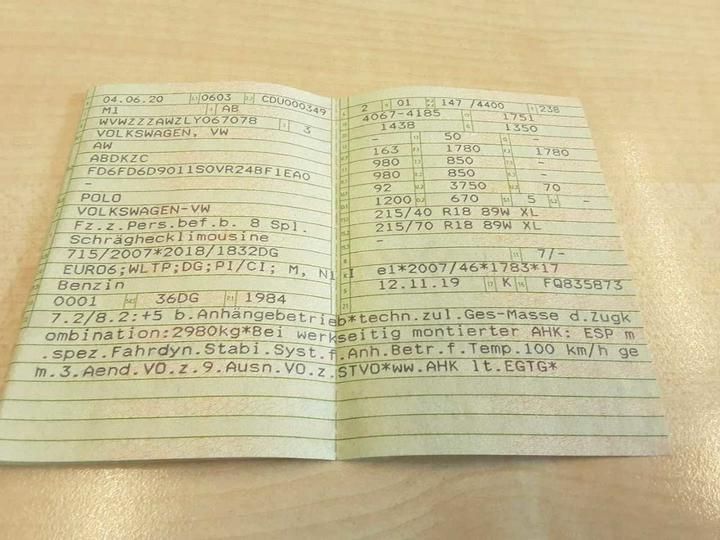 04.06.20 0603 CDU000349
M1 AB
WVWZZZAWZLY067078 3
VOLKSWAGEN, VW
AW
ABDKZC
FD6FD6D9011SOVR24BF1EA0
-
POLO
VOLKSWAGEN-VW
Fz.z.Pers.bef.b. 8 Spl.
Schräghecklimousine
715/2007*2018/1832DG
EURO6;WLTP;DG;PI/CI; M, N1 I
Benzin
0001 36DG 1984
2 01 147 /4400 238
4067-4185 1751
1438 1350
- 50 -
163 1780 1780
980 850 -
980 850 -
92 3750 70
1200 670 5 -
215/40 R18 89W XL
215/70 R18 89W XL
-
7/-
e1*2007/46*1783*17
12.11.19 K FQ835873
7.2/8.2:+5 b.Anhängebetrieb*techn.zul.Ges-Masse d.Zugk
ombination:2980kg*Bei werkseitig montierter AHK: ESP m
.spez.Fahrdyn.Stabi.Syst.f.Anh.Betr.f.Temp.100 km/h ge
m.3.Aend.VO.z.9.Ausn.VO.z.STVO*ww.AHK lt.EGTG*